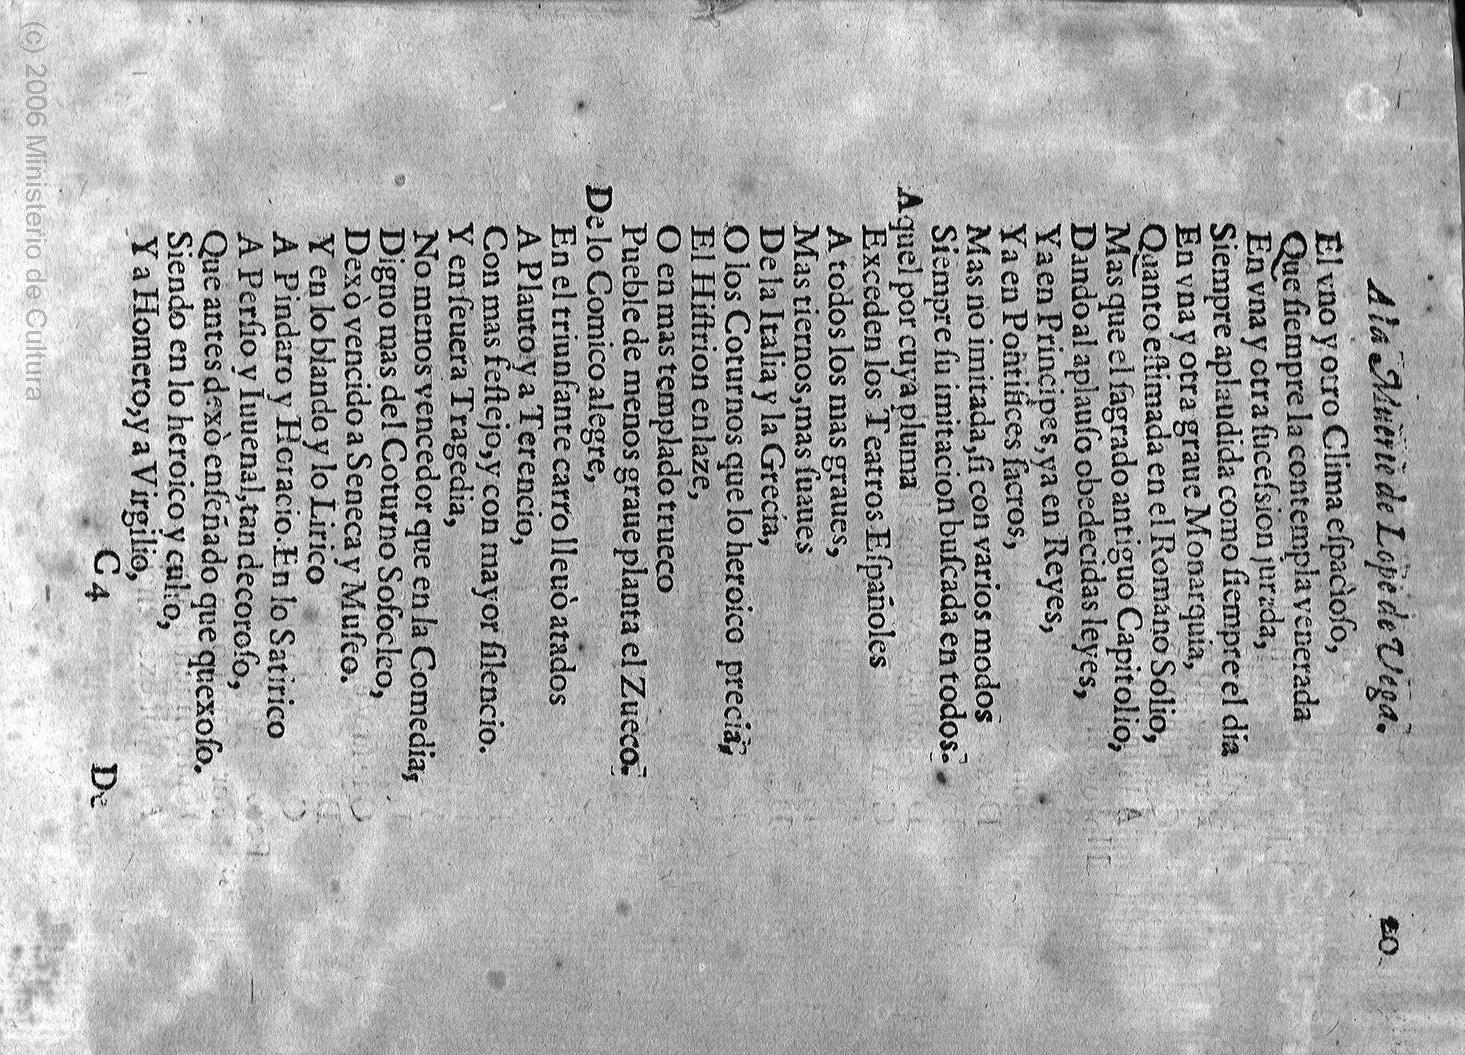 A la Muerte de Lope de Vega. 20
El vno y otro Clima eſpacioſo,
Que ſiempre la contempla venerada
En vna y otra ſuceſsion jurada,
Siempre aplaudida como ſiempre el dia
En vna y otra graue Monarquia,
Quanto eſtimada en el Romano Solio,
Mas que el ſagrado antiguo Capitolio,
Dando al aplauſo obedecidas leyes,
Ya en Principes, ya en Reyes,
Ya en Pontifices ſacros,
Mas no imitada, ſi con varios modos
Siempre ſu imitacion buſcada en todos.
Aquel por cuya pluma
Exceden los Teatros Eſpañoles
A todos los mas graues,
Mas tiernos, mas ſuaues
De la Italia y la Grecia,
O los Coturnos que lo heroico precia,
El Hiſtrion enlaze,
O en mas templado trueco
Pueble de menos graue planta el Zueco.
De lo Comico alegre,
En el triunfante carro lleuò atados
A Plauto y a Terencio,
Con mas feſtejo, y con mayor ſilencio.
Y en ſeuera Tragedia,
No menos vencedor que en la Comedia,
Digno mas del Coturno Sofocleo,
Dexò vencido a Seneca y Muſeo.
Y en lo blando y lo Lirico
A Pindaro y Horacio. En lo Satirico
A Perſio y Iuuenal, tan decoroſo,
Que antes dexò enſeñado que quexoſo.
Siendo en lo heroico y culto,
Y a Homero, y a Virgilio,
C 4 De
(c) 2006 Ministerio de Cultura